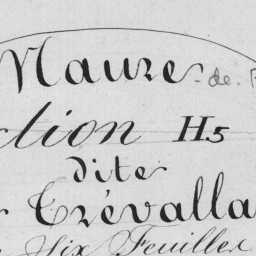 Maure de
ction H5
dite
Trévalla
Six Feuilles